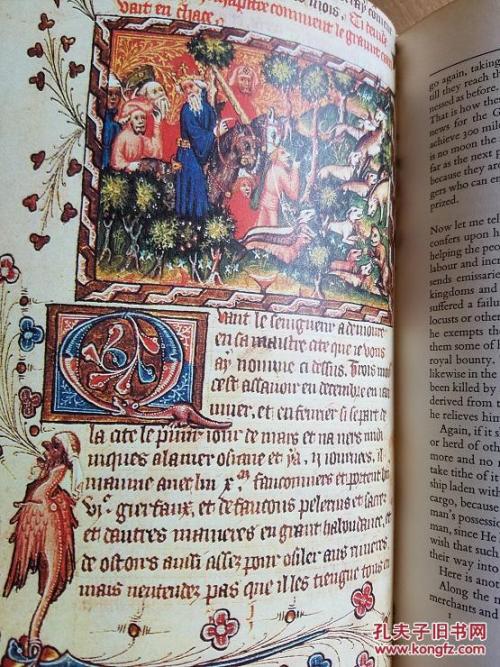 mois
chapitre comment le graunt caan
vait en chace
Uant le seingneur a demoure
en sa maistre cite que ie vous
ay nomme ci dessus
cest assavoir en decembre en ian
uier, et en feurier si se part de
la cite le premier iour de mars et
il
maine fauconniers et portent bien
gierfaux, et de faucons pelerins et sacres
et dautres manieres en grant habondance, et
de ostoirs aussi assez pour oiseler aus riuieres
mais nentendez pas que il les tiengne tous en
go again, taking
till they reach th
nessed as before.
That is how th
news for the G
achieve 300 mil
is no moon the
far as the next p
because they are
gers who can en
prized.
Now let me tel
confers upon h
helping the peop
labour and incr
sends emissarie
kingdoms and
suffered a failu
locusts or other
he exempts th
them some of h
royal bounty,
likewise in the
been killed by
derived from t
he relieves him
Again, if it s
or herd of othe
more and no
take tithe of it
ship laden with
cargo, because
man's possess
man, since He
wish that such
their way into
Here is anot
Along the m
merchants and
孔夫子旧书网
www.kongfz.com